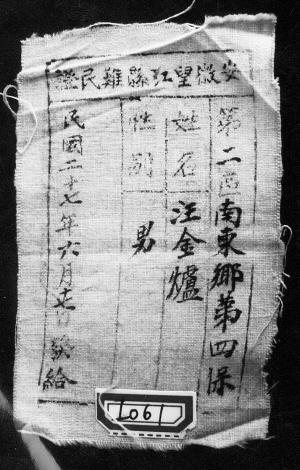 安徽望江縣難民證
第二區南東鄉第四保
姓名 汪金爐
性別 男
民國二十七年六月 日發給
1061